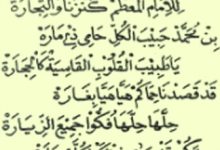 للإمام المعظم كنزنا والتجارة
بن محمد حبيب الكل حامي ذماره
يا طبيب القلوب القاسية كالحجارة
قد قصدنا حماكم هيا هيا بغارة
حلها حلها فكوا جميع الزيارة